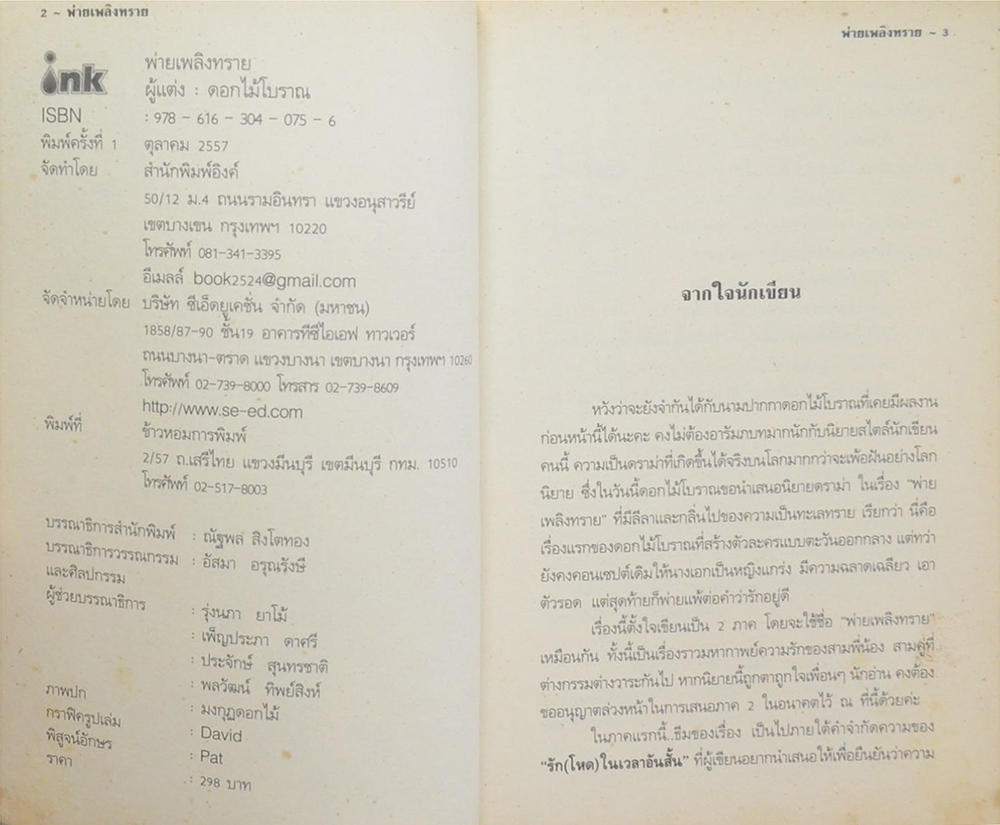 2 ~ พ่ายเพลิงทราย
ink
พ่ายเพลิงทราย
ผู้แต่ง : ดอกไม้โบราณ
ISBN : 978 - 616 - 304 - 075 - 6
พิมพ์ครั้งที่ 1 ตุลาคม 2557
จัดทำโดย สำนักพิมพ์อิงค์
50/12 ม.4 ถนนรามอินทรา แขวงอนุสาวรีย์
เขตบางเขน กรุงเทพฯ 10220
โทรศัพท์ 081-341-3395
อีเมลล์ book2524@gmail.com
จัดจำหน่ายโดย บริษัท ซีเอ็ดยูเคชั่น จำกัด (มหาชน)
1858/87-90 ชั้น19 อาคารทีซีไอเอฟ ทาวเวอร์
ถนนบางนา-ตราด แขวงบางนา เขตบางนา กรุงเทพฯ 10260
โทรศัพท์ 02-739-8000 โทรสาร 02-739-8609
http://www.se-ed.com
พิมพ์ที่ ข้าวหอมการพิมพ์
2/57 ถ.เสรีไทย แขวงมีนบุรี เขตมีนบุรี กทม. 10510
โทรศัพท์ 02-517-8003
บรรณาธิการสำนักพิมพ์ : ณัฐพล สิงโตทอง
บรรณาธิการวรรณกรรม : อัสมา อรุณรังษี
และศิลปกรรม
ผู้ช่วยบรรณาธิการ : รุ่งนภา ยาโม้
: เพ็ญประภา ดาศรี
: ประจักษ์ สุนทรชาติ
: พลวัฒน์ ทิพย์สิงห์
ภาพปก : มงกุฎดอกไม้
กราฟิครูปเล่ม : David
พิสูจน์อักษร : Pat
ราคา : 298 บาท
พ่ายเพลิงทราย ~ 3
จากใจนักเขียน
หวังว่าจะยังจำกันได้กับนามปากกาดอกไม้โบราณที่เคยมีผลงาน
ก่อนหน้านี้ได้นะคะ คงไม่ต้องอารัมภบทมากนักกับนิยายสไตล์นักเขียน
คนนี้ ความเป็นดราม่าที่เกิดขึ้นได้จริงบนโลกมากกว่าจะเพ้อฝันอย่างโลก
นิยาย ซึ่งในวันนี้ดอกไม้โบราณขอนำเสนอนิยายดราม่า ในเรื่อง "พ่าย
เพลิงทราย" ที่มีลีลาและกลิ่นไปของความเป็นทะเลทราย เรียกว่า นี่คือ
เรื่องแรกของดอกไม้โบราณที่สร้างตัวละครแบบตะวันออกกลาง แต่ทว่า
ยังคงคอนเซปต์เดิมให้นางเอกเป็นหญิงแกร่ง มีความฉลาดเฉลียว เอา
ตัวรอด แต่สุดท้ายก็พ่ายแพ้ต่อคำว่ารักอยู่ดี
เรื่องนี้ตั้งใจเขียนเป็น 2 ภาค โดยจะใช้ชื่อ "พ่ายเพลิงทราย"
เหมือนกัน ทั้งนี้เป็นเรื่องราวมหากาพย์ความรักของสามพี่น้อง สามคู่ที่
ต่างกรรมต่างวาระกันไป หากนิยายนี้ถูกตาถูกใจเพื่อนๆ นักอ่าน คงต้อง
ขออนุญาตล่วงหน้าในการเสนอภาค 2 ในอนาคตไว้ ณ ที่นี้ด้วยค่ะ
ในภาคแรกนี้..ธีมของเรื่อง เป็นไปภายใต้คำจำกัดความของ
"รัก(โหด)ในเวลาอันสั้น" ที่ผู้เขียนอยากนำเสนอให้เพื่อยืนยันว่าความ